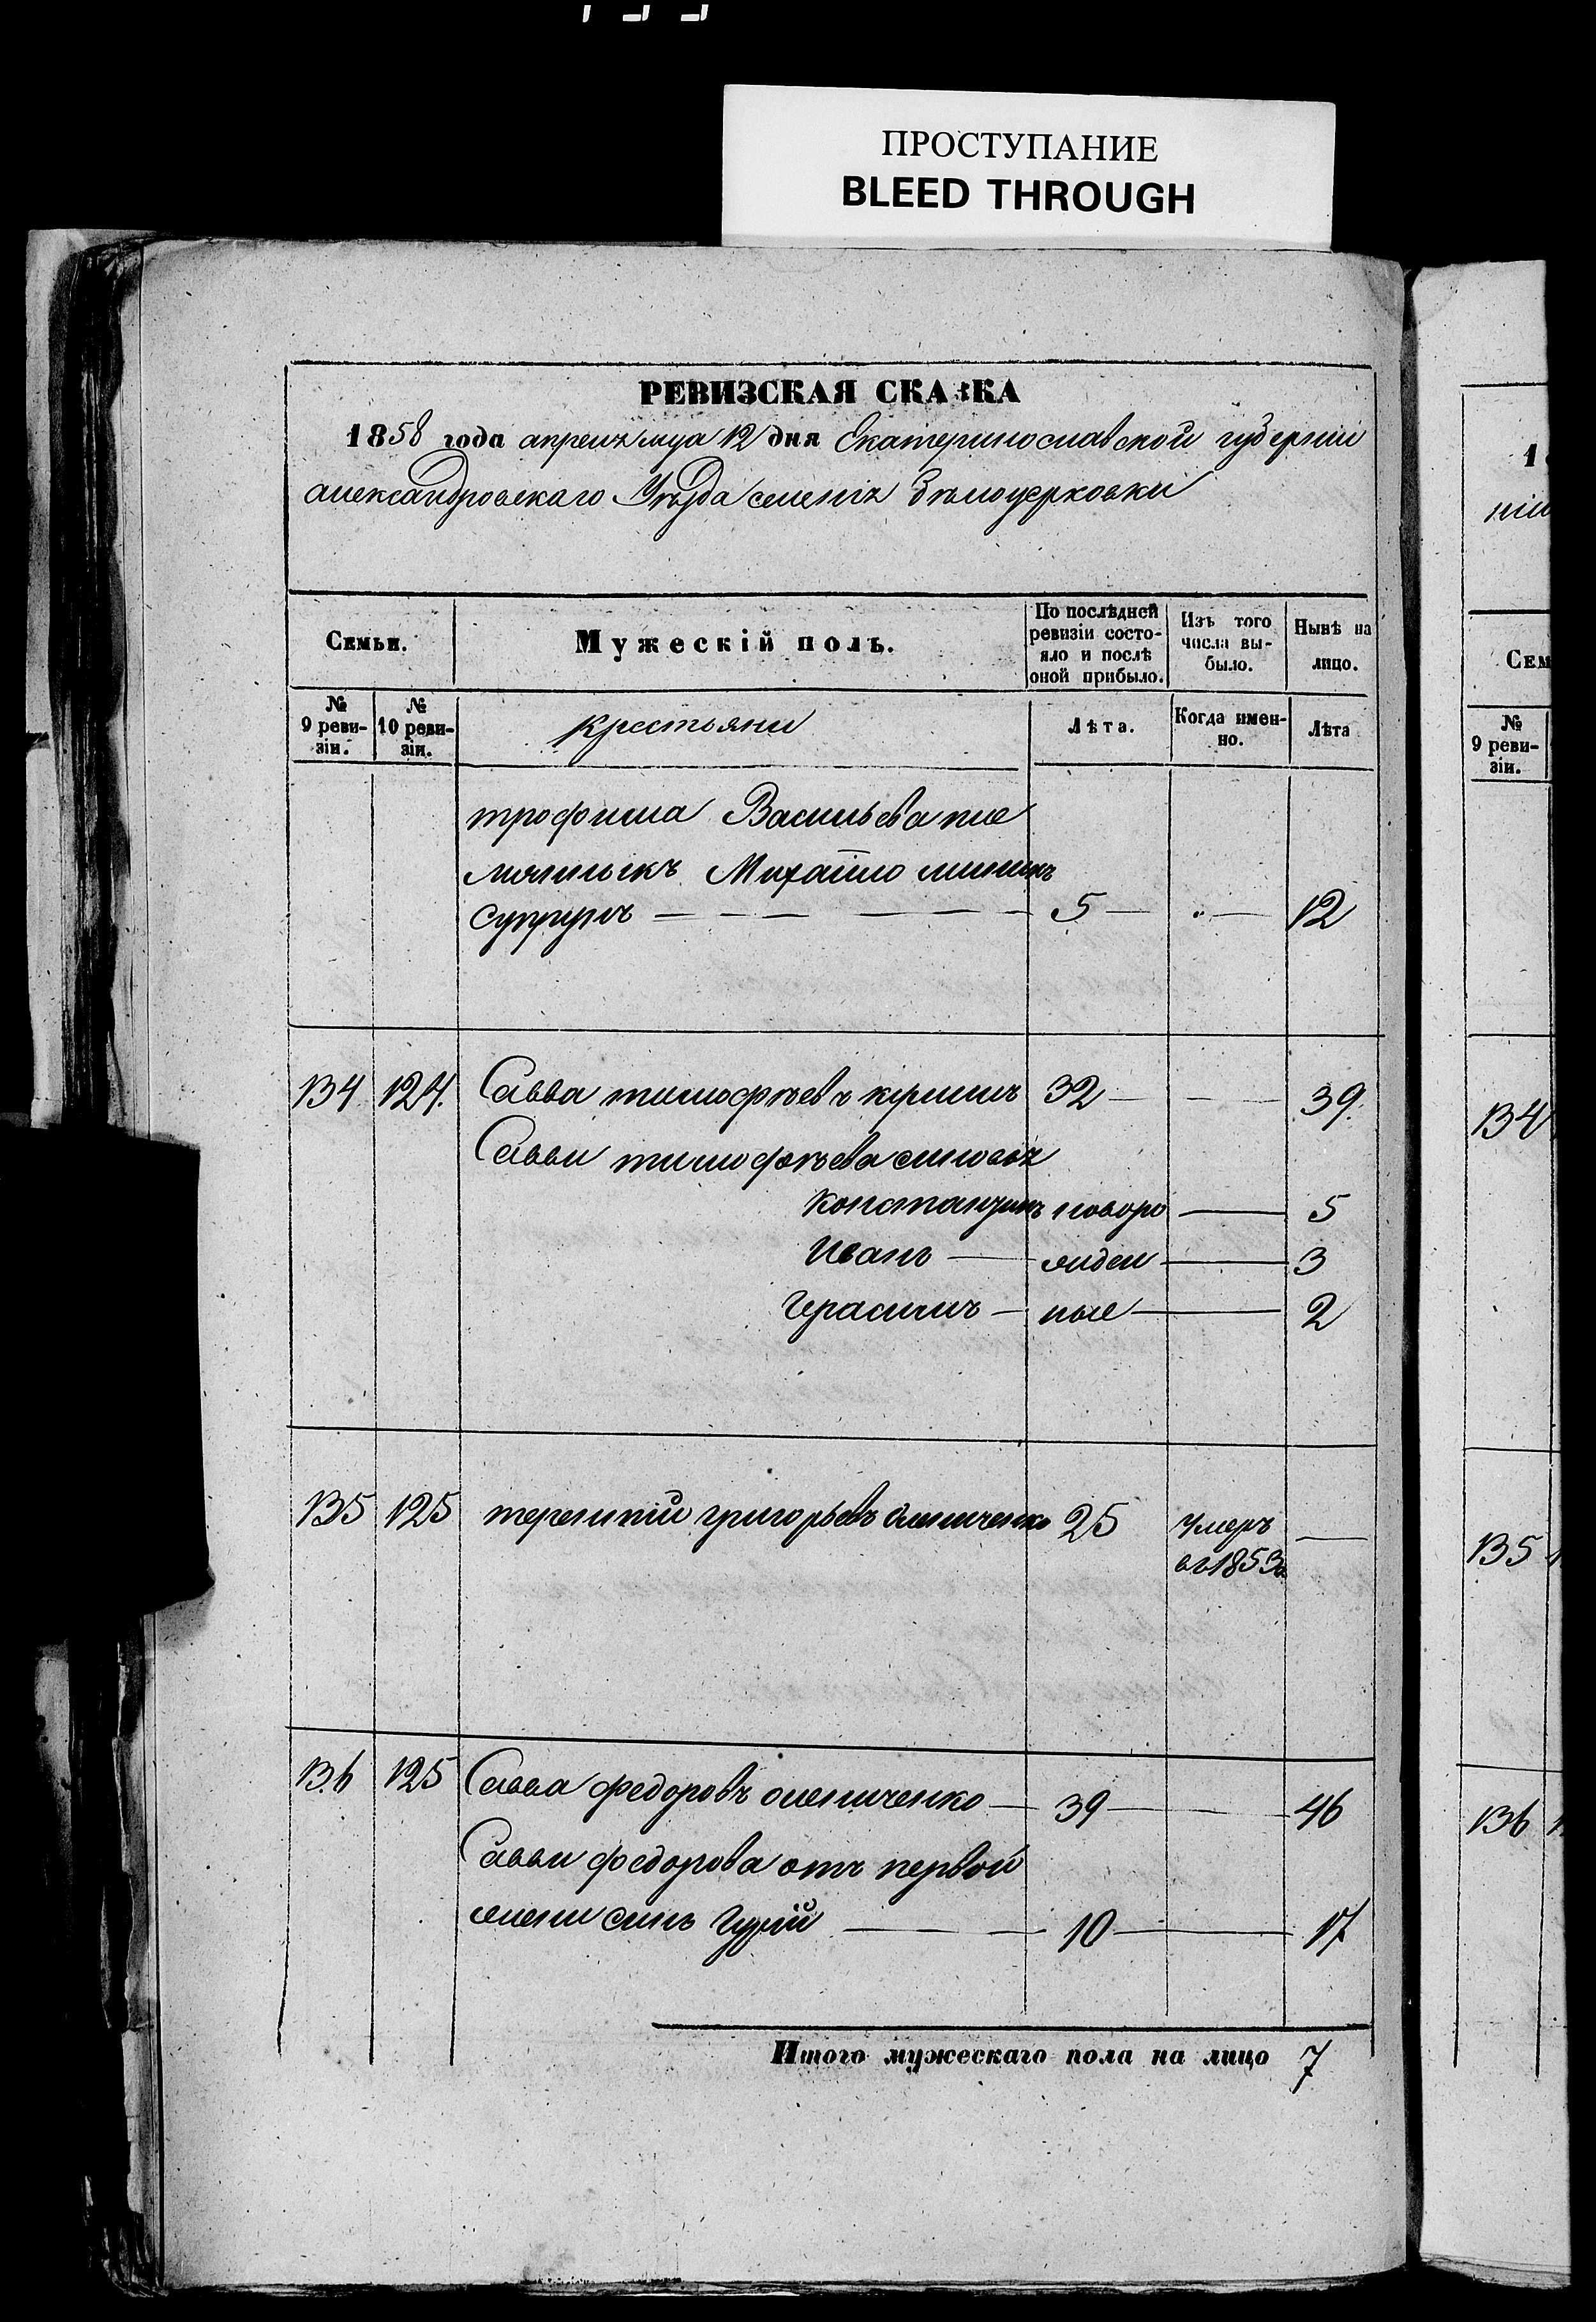 ПРОСТУПАНИЕ
BLEED THROUGH
РЕВИЗСКАЯ СКАЗКА
1858 года апреля мца 12 дня Екатеринославской губернии
александровскаго Уезда селенія белоцерковки
Семьи.
Мужескій полъ.
По послѣдней ревизіи состо-
яло и послѣ
оной прибыло.
Изъ того
числа вы-
было.
Нынѣ на
лицо.
№
9 реви-
зіи.
№
10 реви-
зіи.
крестьяни
Лѣта.
Когда имен-
но.
Лѣта
трофима Васильева пле
мянныкъ Михайло мининъ
5 12
134 124. Савва тимофѣевъ 32 39.
Савви тимофѣева синовья
Константинъ новоро 5
Иванъ жиден 3
Герасимъ ные 2
135 125 терентий григорьевъ Олениченко 25 Умеръ
въ 1853г.
136 125 Савва федоровъ олениченко 39 46
Савви федорова отъ первой
жени синъ Гурій 10 17
Итого мужескаго пола на лицо 7
1
ніи
Сем
№
9 реви-
зіи.
134
135
136